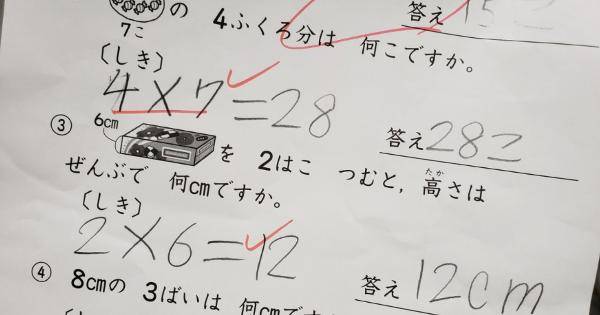 の 4ふくろ分は 何こですか。
7こ
答え 15こ
(しき)
4×7=28
答え 28こ
③ 6cm を 2はこ つむと,高さは
たか
ぜんぶで 何cmですか。
(しき)
2×6=12
答え 12cm
④ 8cmの 3ばいは 何cmで